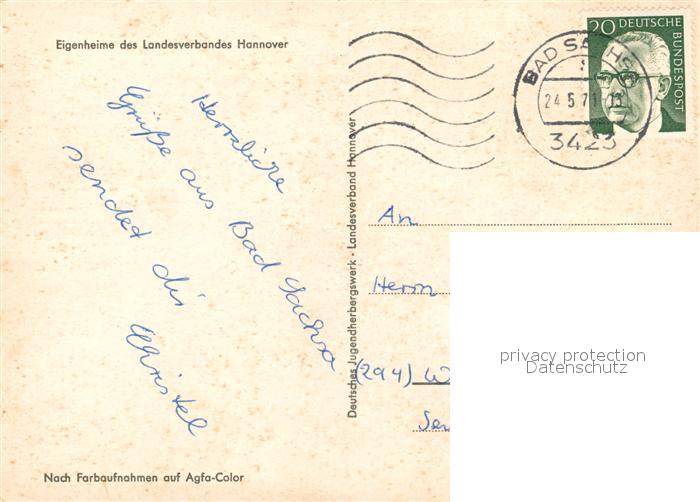 Eigenheime des Landesverbandes Hannover
Herrliche
Grüße aus Bad Sachsa
sendet dir
Christel
Nach Farbaufnahmen auf Agfa-Color
Deutsches Jugendherbergswerk · Landesverband Hannover
20 DEUTSCHE
BUNDESPOST
BAD SACHSA
24.5.71
3423
An
Herrn
(294) W
privacy protection
Datenschutz